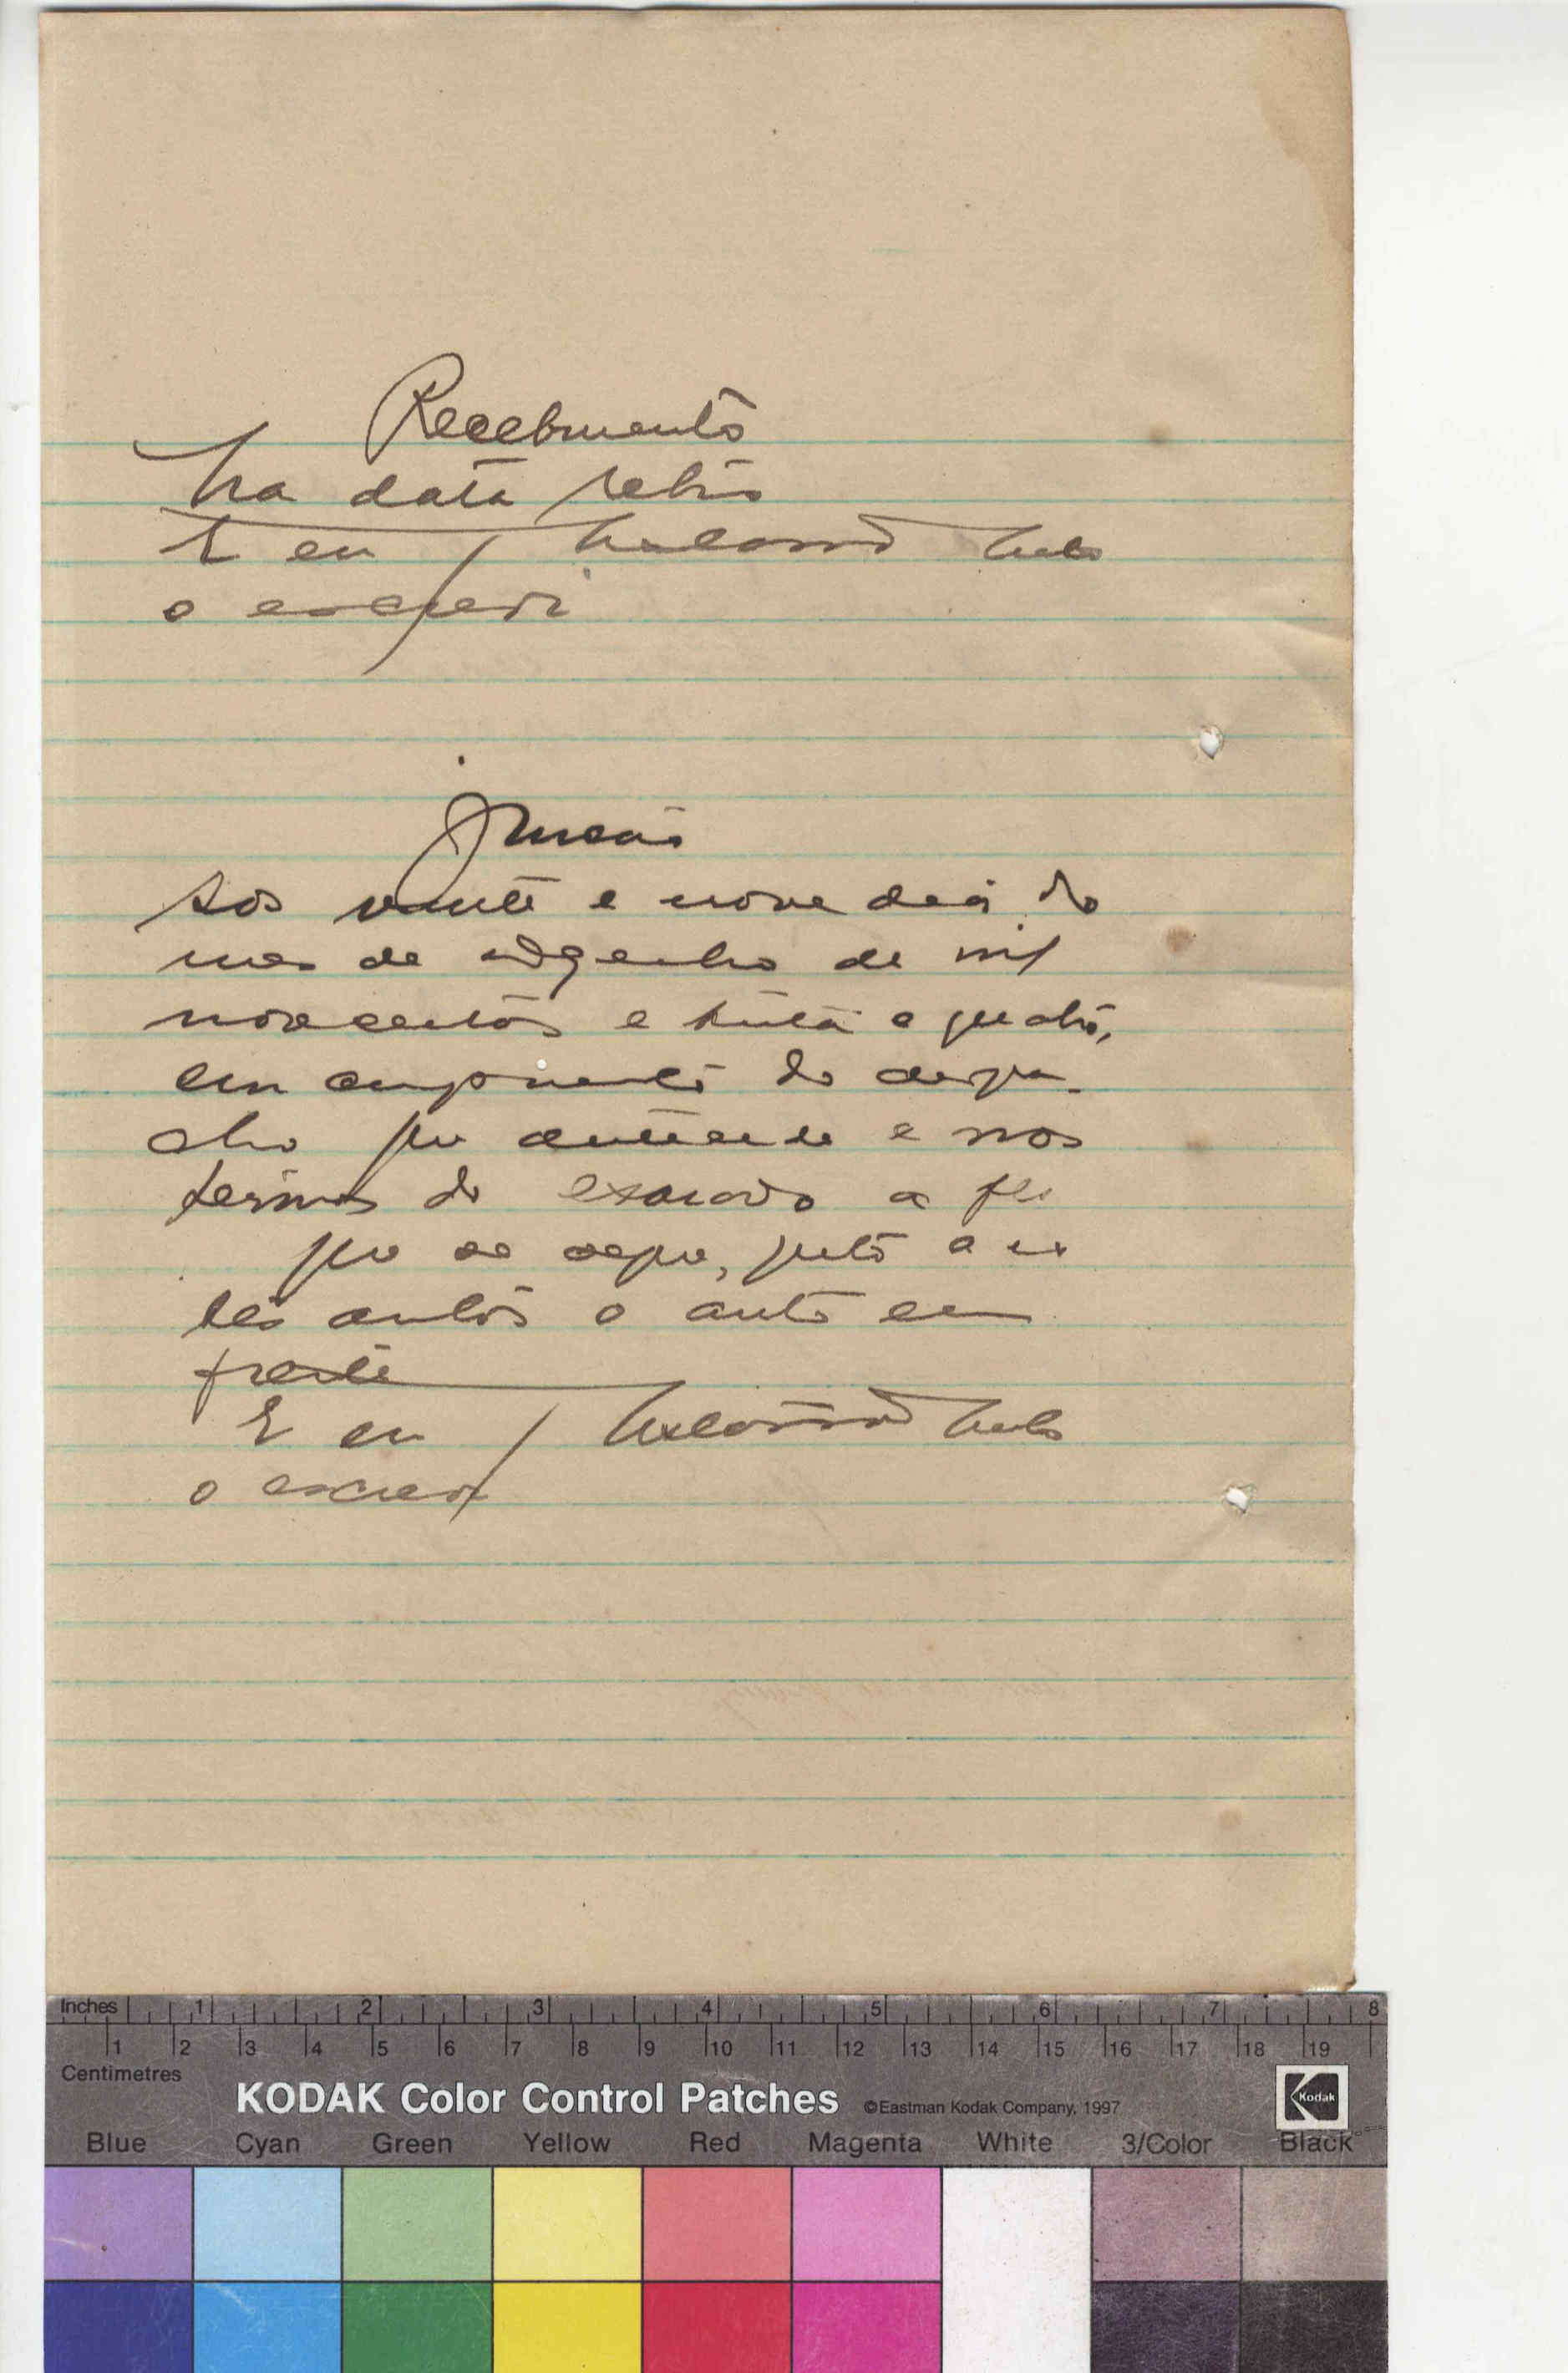 Recebimento
Na data retro
E eu
o escrevi
Juncão
Aos vinte e nove dias do
mes de de mil
novecentos e trinta e quatro,
em cumprimento do despa-
cho que antecede e nos
termos do exarado a fls
que se segue, junto a es
tes autos o auto em
frente
E eu
o escrevi
Inches 1 2 3 4 5 6 7 8
1 2 3 4 5 6 7 8 9 10 11 12 13 14 15 16 17 18 19
Centimetres
KODAK Color Control Patches ©Eastman Kodak Company, 1997 Kodak
Blue Cyan Green Yellow Red Magenta White 3/Color Black